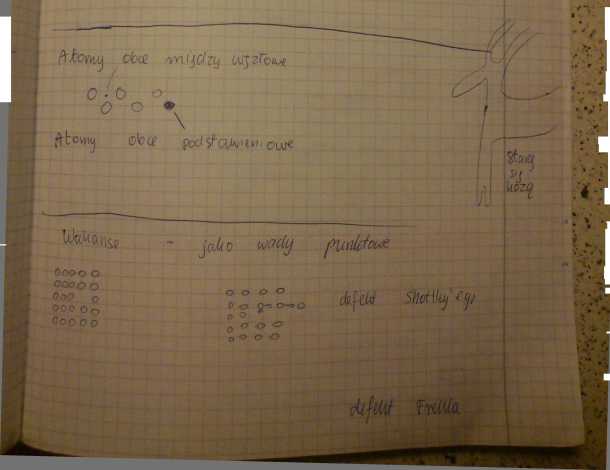 Atomy obce między węzłowe
Atomy obce podstawieniowe
Staną
się
kozą
Wakanse - jako wady punktowe
defekt Shottky'ego
defekt Frenkla